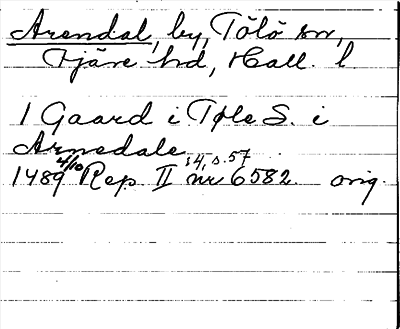 Arendal, by, Tölö sn,
Fjäre hd, Hall. l.
1 Gaard i Tøle S. i
Arnedale
1489 4/10 Rep. II :4, s. 57 nr 6582. orig.